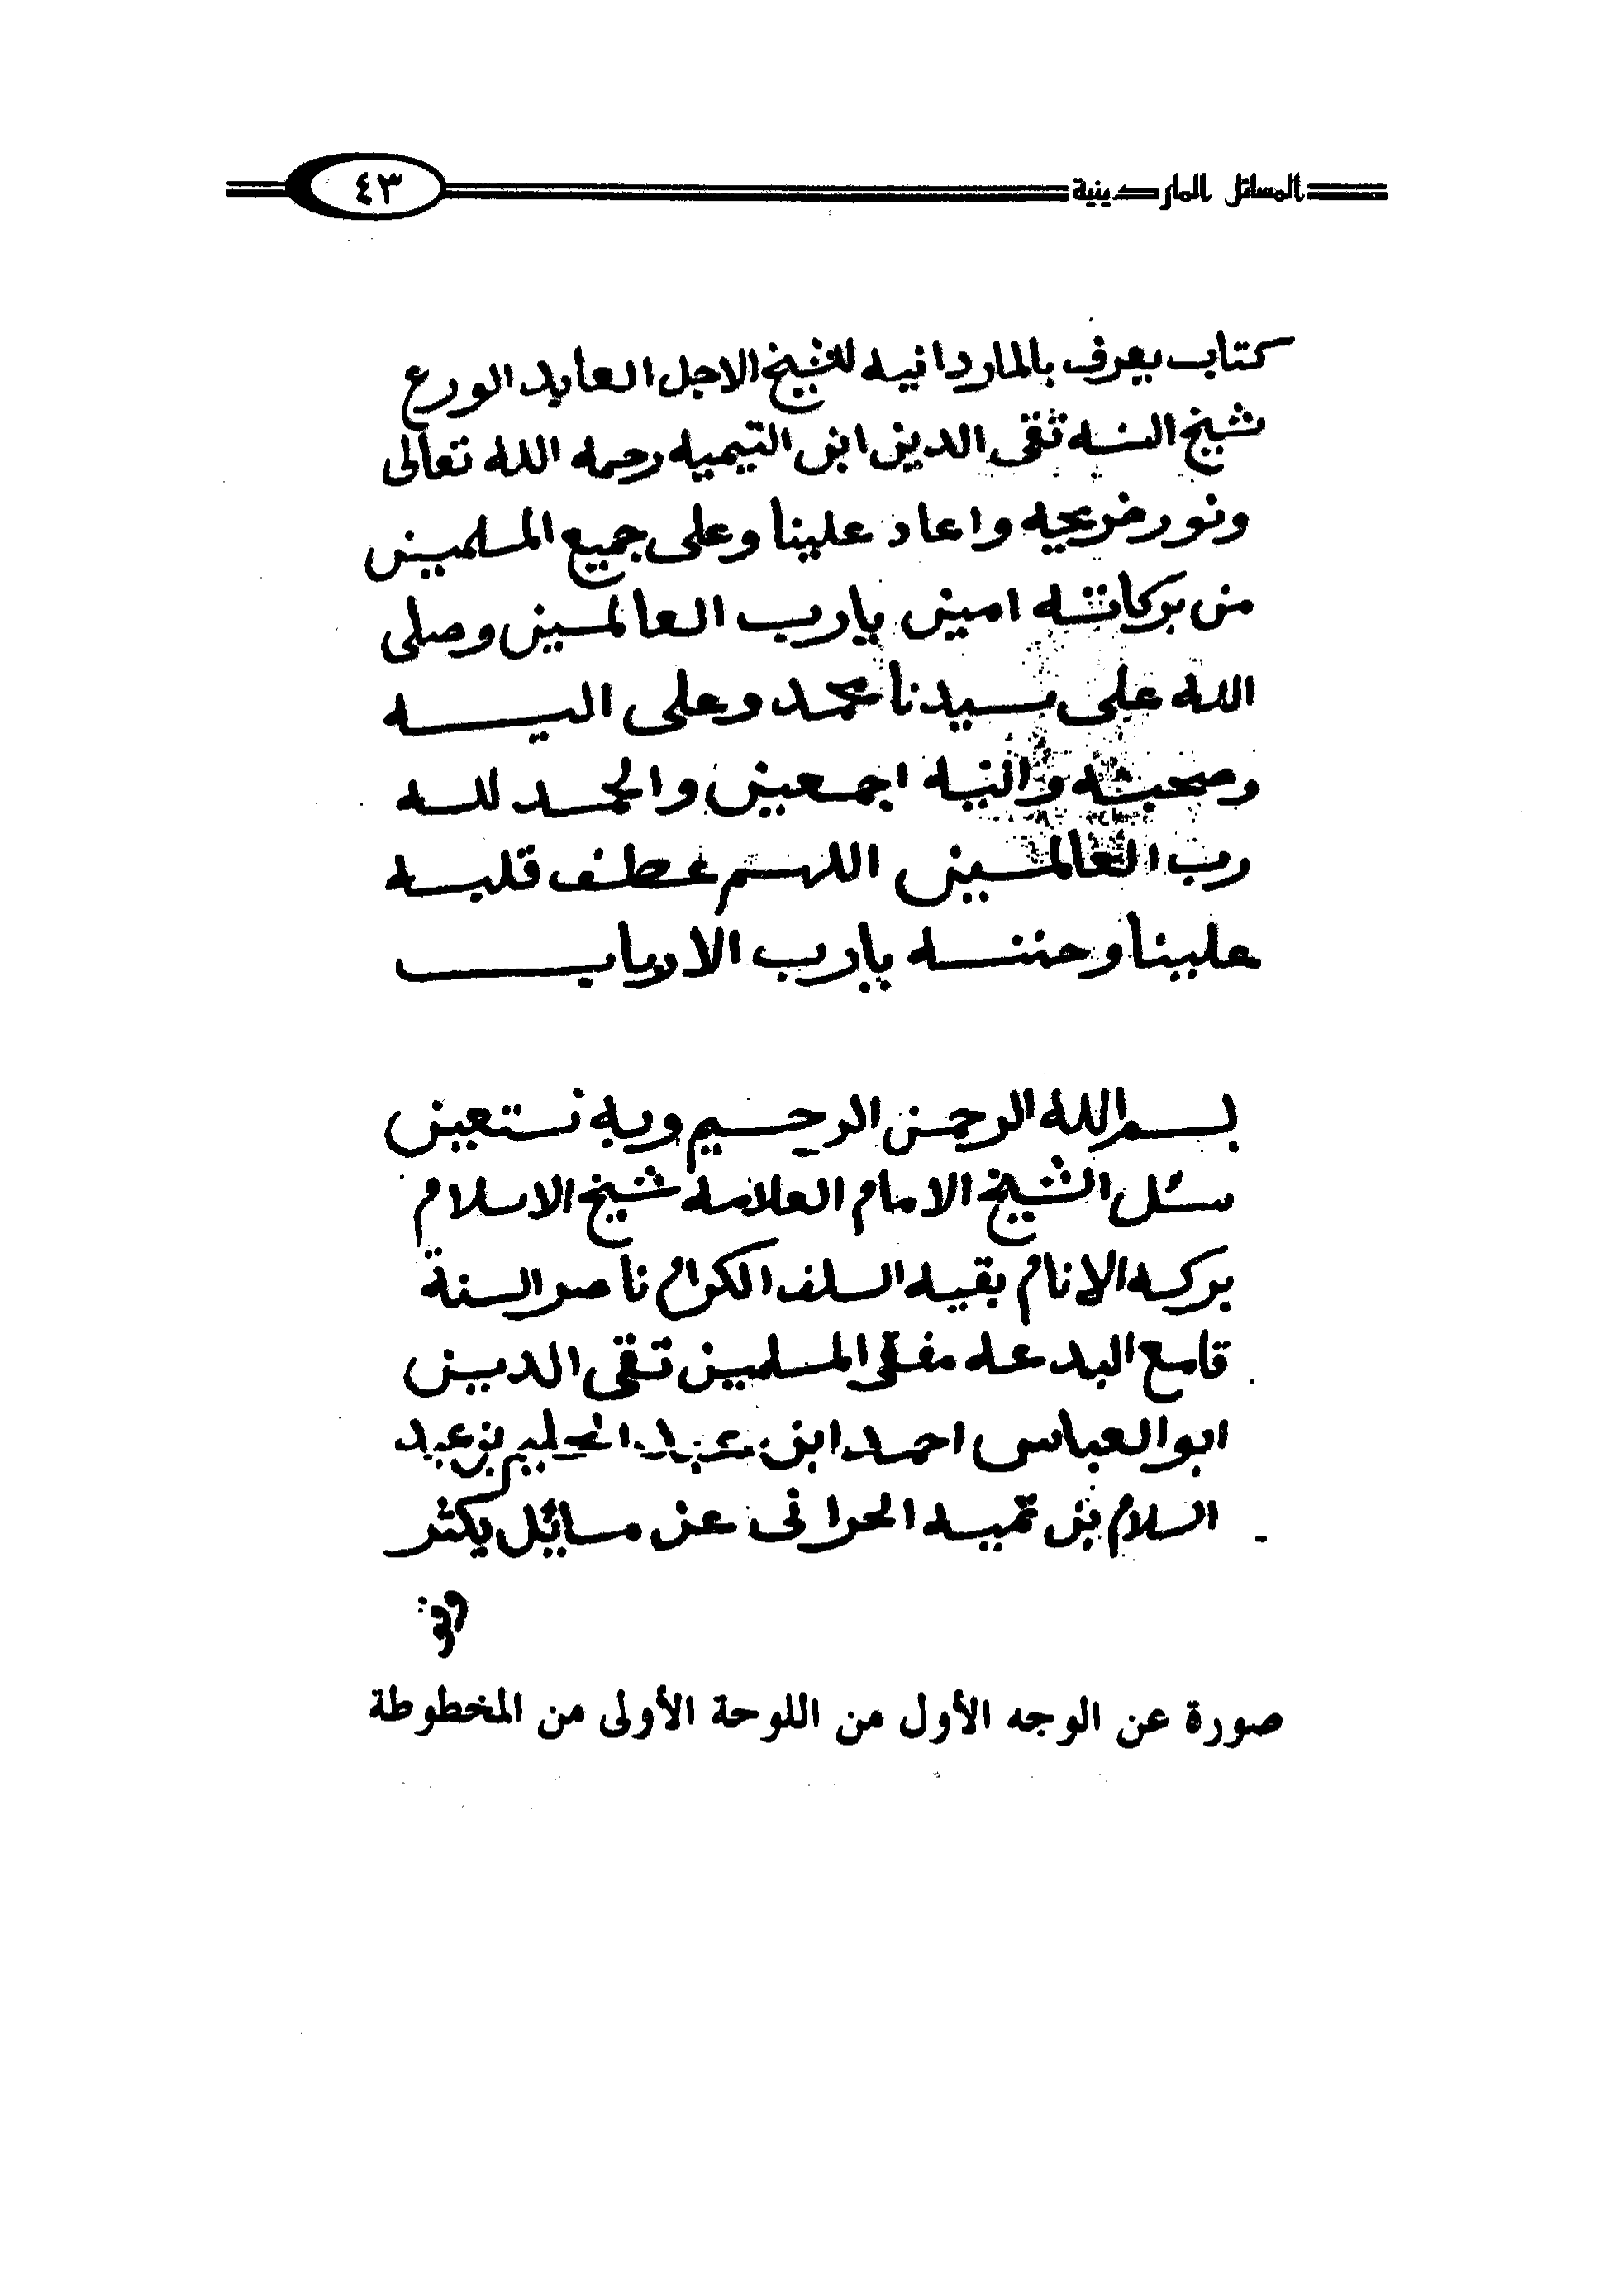 المسائل الماردينية
٤٣
كتاب يعرف بالماردانيه للشيخ الاجل العابد الورع
شيخ السنه تقي الدين ابن التيميه رحمه الله تعالى
ونور ضريحه واعاد علينا وعلى جميع المسلمين
من بركاتته امين يارب العالمين وصلى
الله على سيدنا محمد وعلى اليه
وصحبته واتبيه اجمعين والحمد لله
رب العالمين اللهم عطف قلبه
علينا وحننه يارب الارباب
بسم الله الرحمن الرحيم وبه نستعين
سئل الشيخ الامام العلامه شيخ الاسلام
بركه الانام بقيه السلف الكرام ناصر السنة
قامع البدعه مفتى المسلمين تقى الدين
ابو العباس احمد ابن عبد الحليم بن عبد
السلام بن تميه الحرانى عن مسايل يكثر
صورة عن الوجه الأول من اللوحة الأولى من المخطوطة